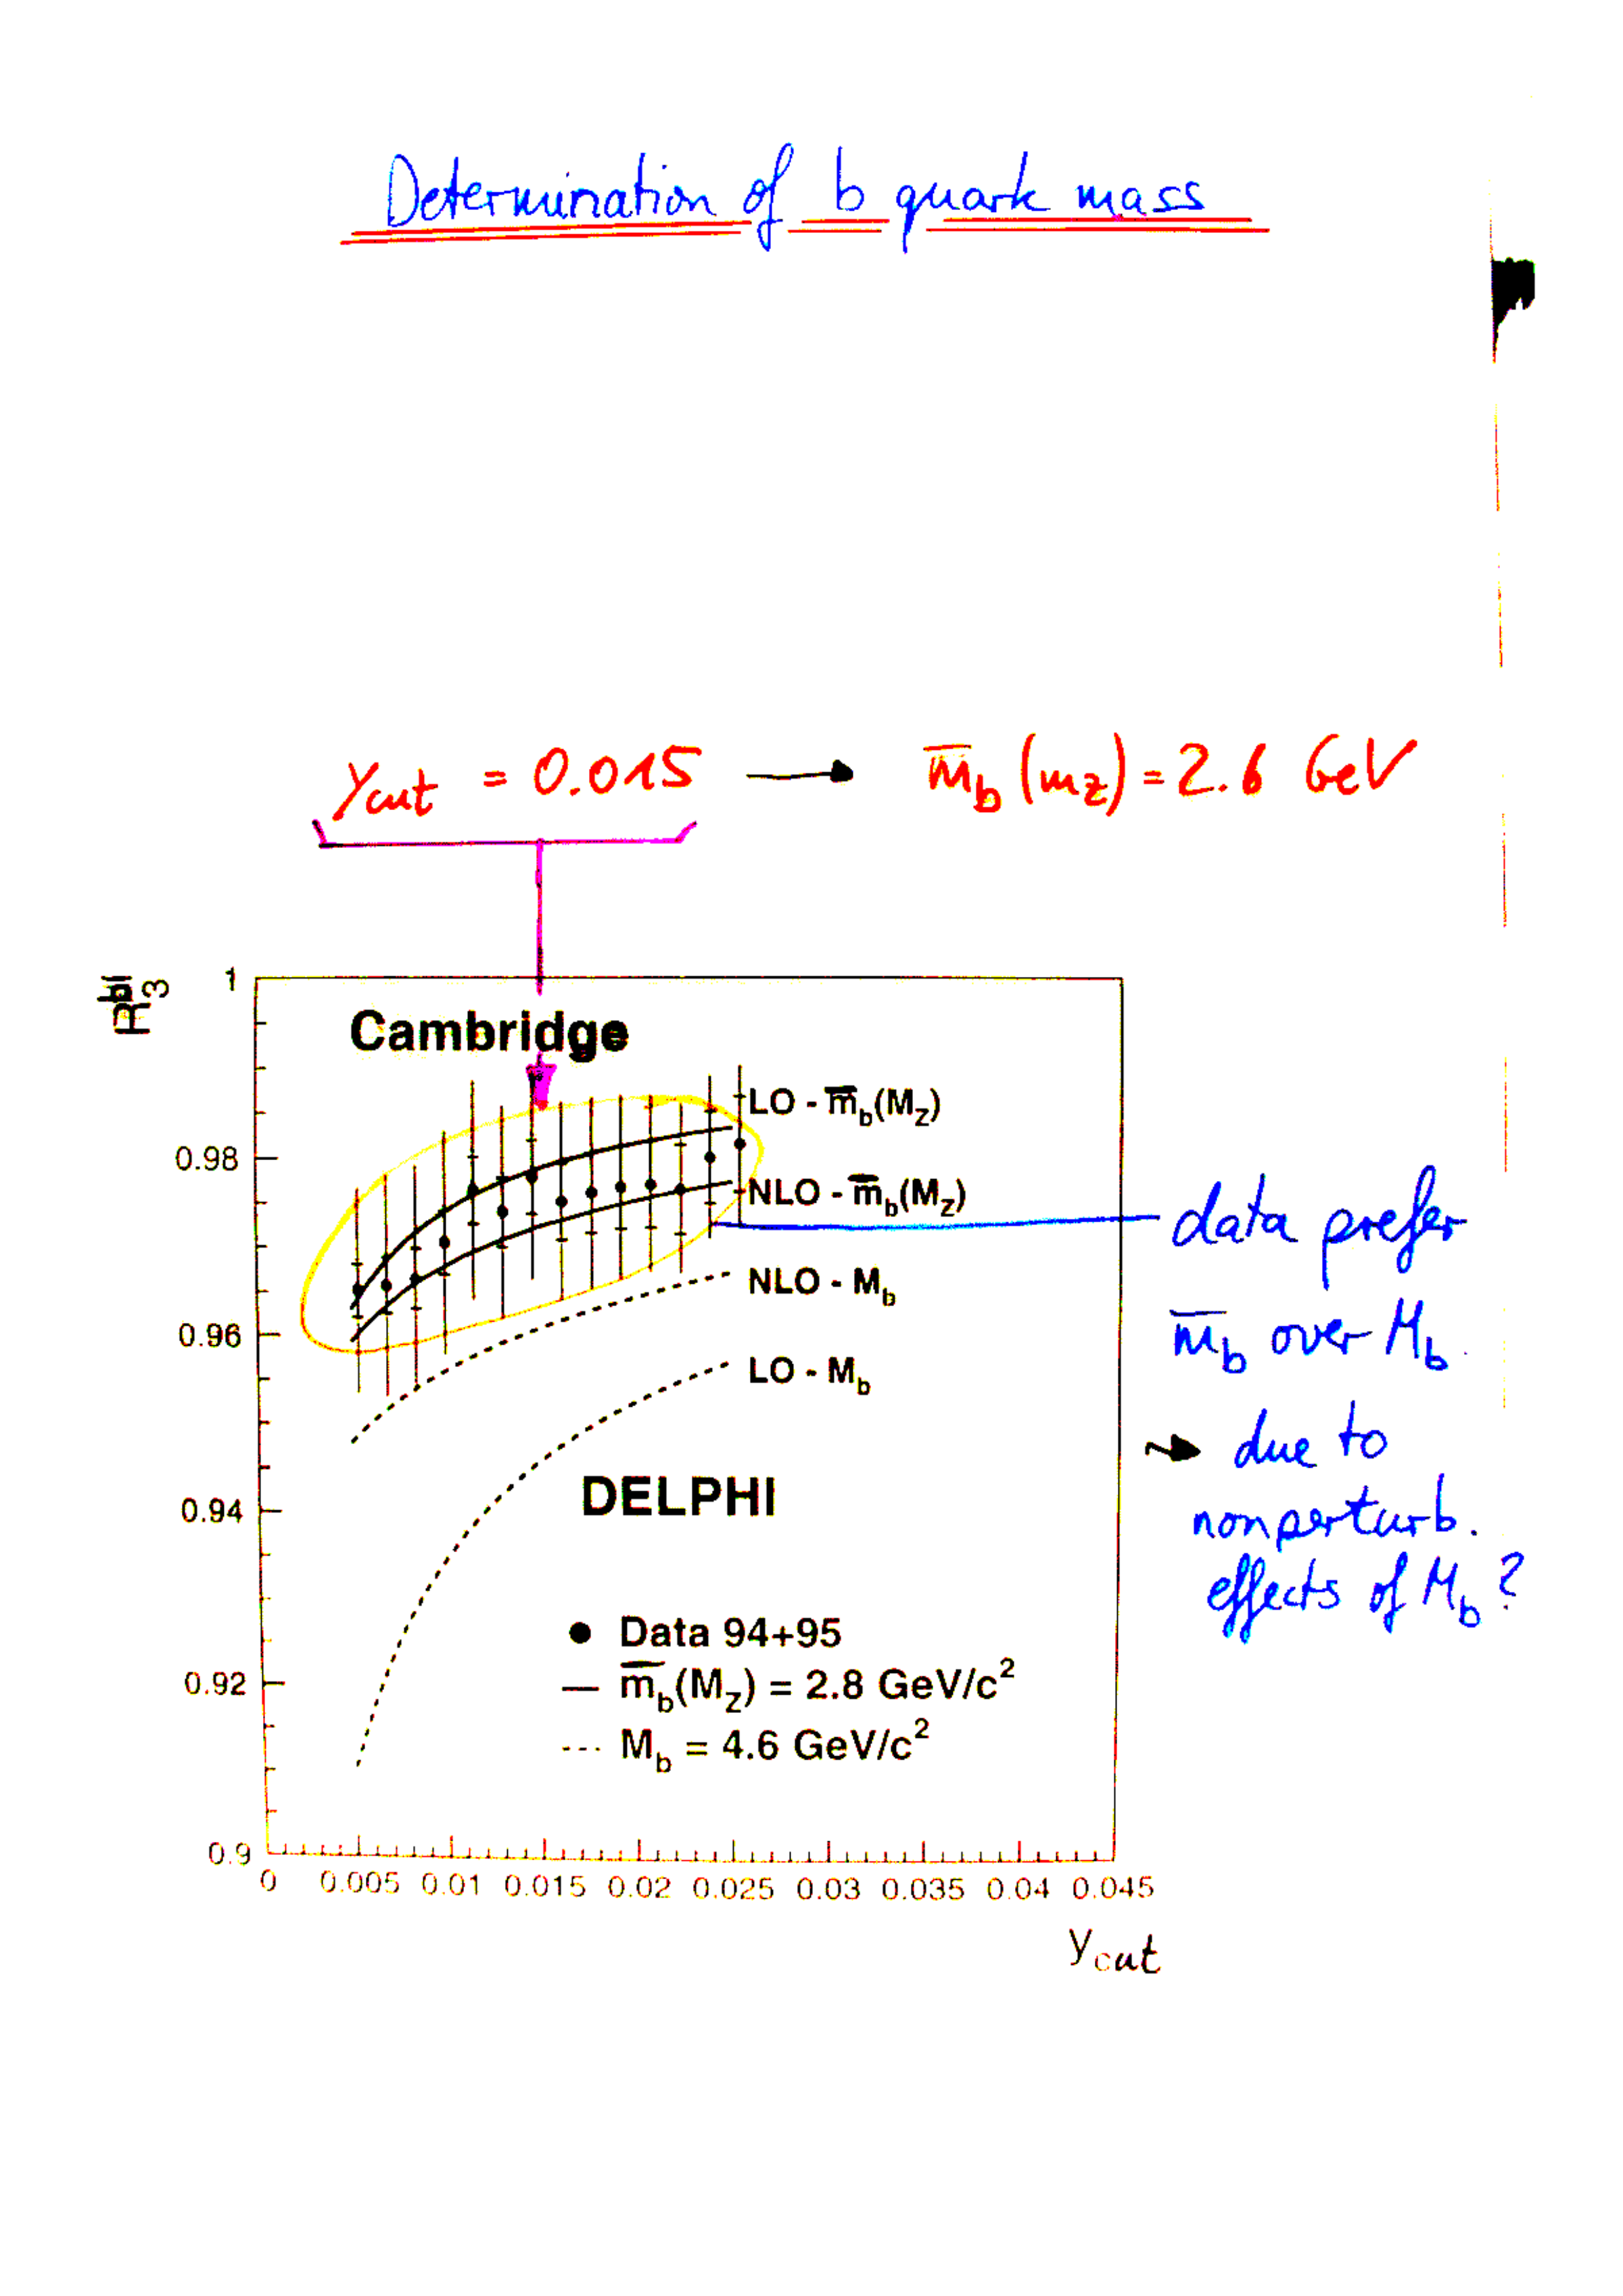 Determination of b quark mass
ycut = 0.015 → m̅b (mz) = 2.6 GeV
R3bl
1
0.98
0.96
0.94
0.92
0.9
Cambridge
LO - m̅b(MZ)
NLO - m̅b(MZ)
NLO - Mb
LO - Mb
DELPHI
Data 94+95
m̅b(MZ) = 2.8 GeV/c2
Mb = 4.6 GeV/c2
0 0.005 0.01 0.015 0.02 0.025 0.03 0.035 0.04 0.045
ycut
data prefer
m̅b over Mb
→ due to
nonperturb.
effects of Mb ?